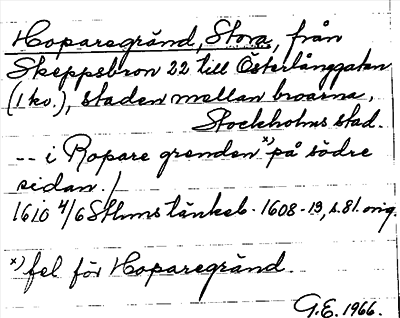 Hoparegränd, Stora, från
Skeppsbron 22 till Österlånggatan
(1 kv.), staden mellan broarna,
Stockholms stad.
-- i Ropare grenden x) på södre
sidan./
1610 4/6 Sthms tänkeb. 1608-13, s. 81. orig.
x) fel för Hoparegränd.
G.E. 1966.